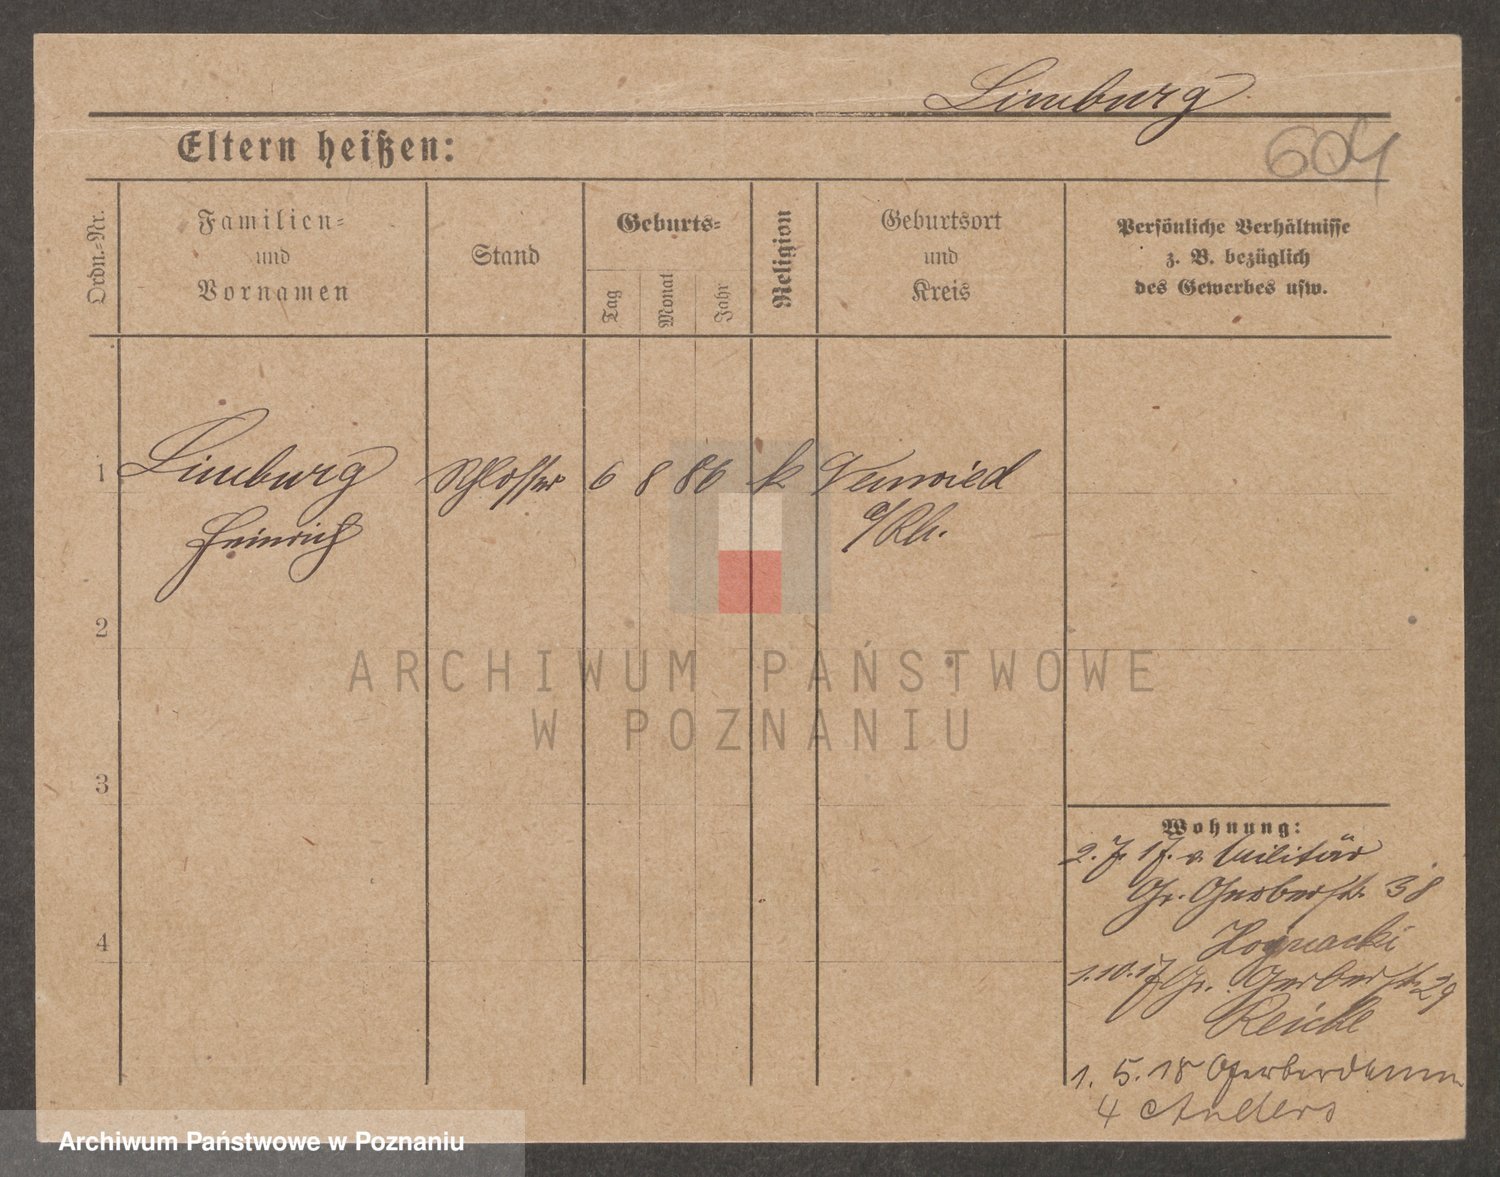 Limburg
604
Eltern heißen:
Ordn.-Nr.
Familien- und Vornamen
Stand
Geburts-
Tag
Monat
Jahr
Religion
Geburtsort und Kreis
Persönliche Verhältnisse
z. B. bezüglich
des Gewerbes usw.
1 Limburg Schlosser 6 8 86 k Neuwied
Heinrich a/Rh.
2
3
4
ARCHIWUM PAŃSTWOWE
W POZNANIU
Wohnung:
2. 7. 17. v. Militär
Gr. Gerberstr. 38
1.10.17 Gr. Gerberstr. 29
Reiche
1. 5. 18 Gerberdamm
4 Anders
Archiwum Państwowe w Poznaniu